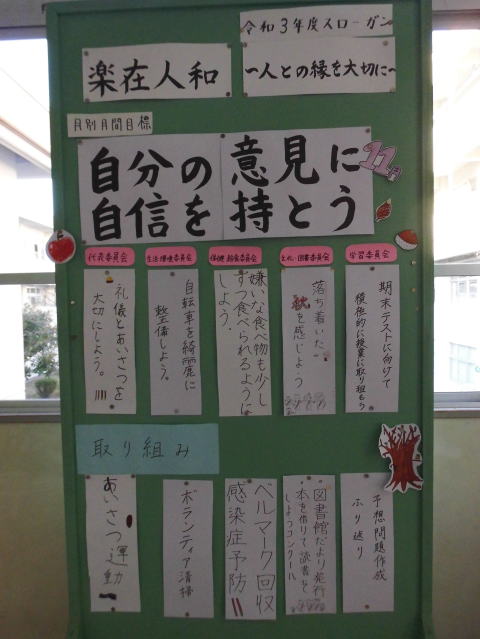 令和3年度スローガン
楽在人和
〜人との縁を大切に〜
月別月間目標
11月
自分の意見に
自信を持とう
代表委員会
生活・環境委員会
保健・給食委員会
文化・図書委員会
学習委員会
礼儀とあいさつを
大切にしよう。
自転車を綺麗に
整備しよう。
嫌いな食べ物も少し
ずつ食べられるように
しよう。
落ち着いた
秋を感じよう
期末テストに向けて
積極的に授業に取り組もう
取り組み
あいさつ運動
ボランティア清掃
ベルマーク回収
感染症予防
図書館だより発行
本を借りて読書を
しようコンクール
予想問題作成
ふり返り